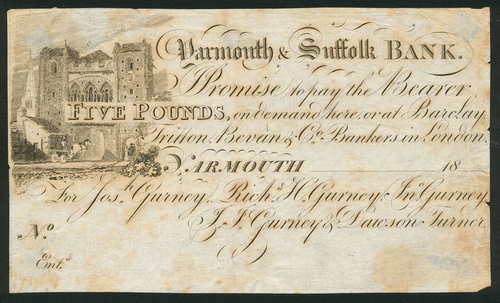 Yarmouth & Suffolk BANK.
I Promise to pay the Bearer
FIVE POUNDS, on demand here, or at Barclay,
Tritton, Bevan & Co. Bankers in London.
YARMOUTH 18
For Jos. Gurney, Richd. H. Gurney, Jno. Gurney
J. J. Gurney & Dawson Turner.
No.
Entd.